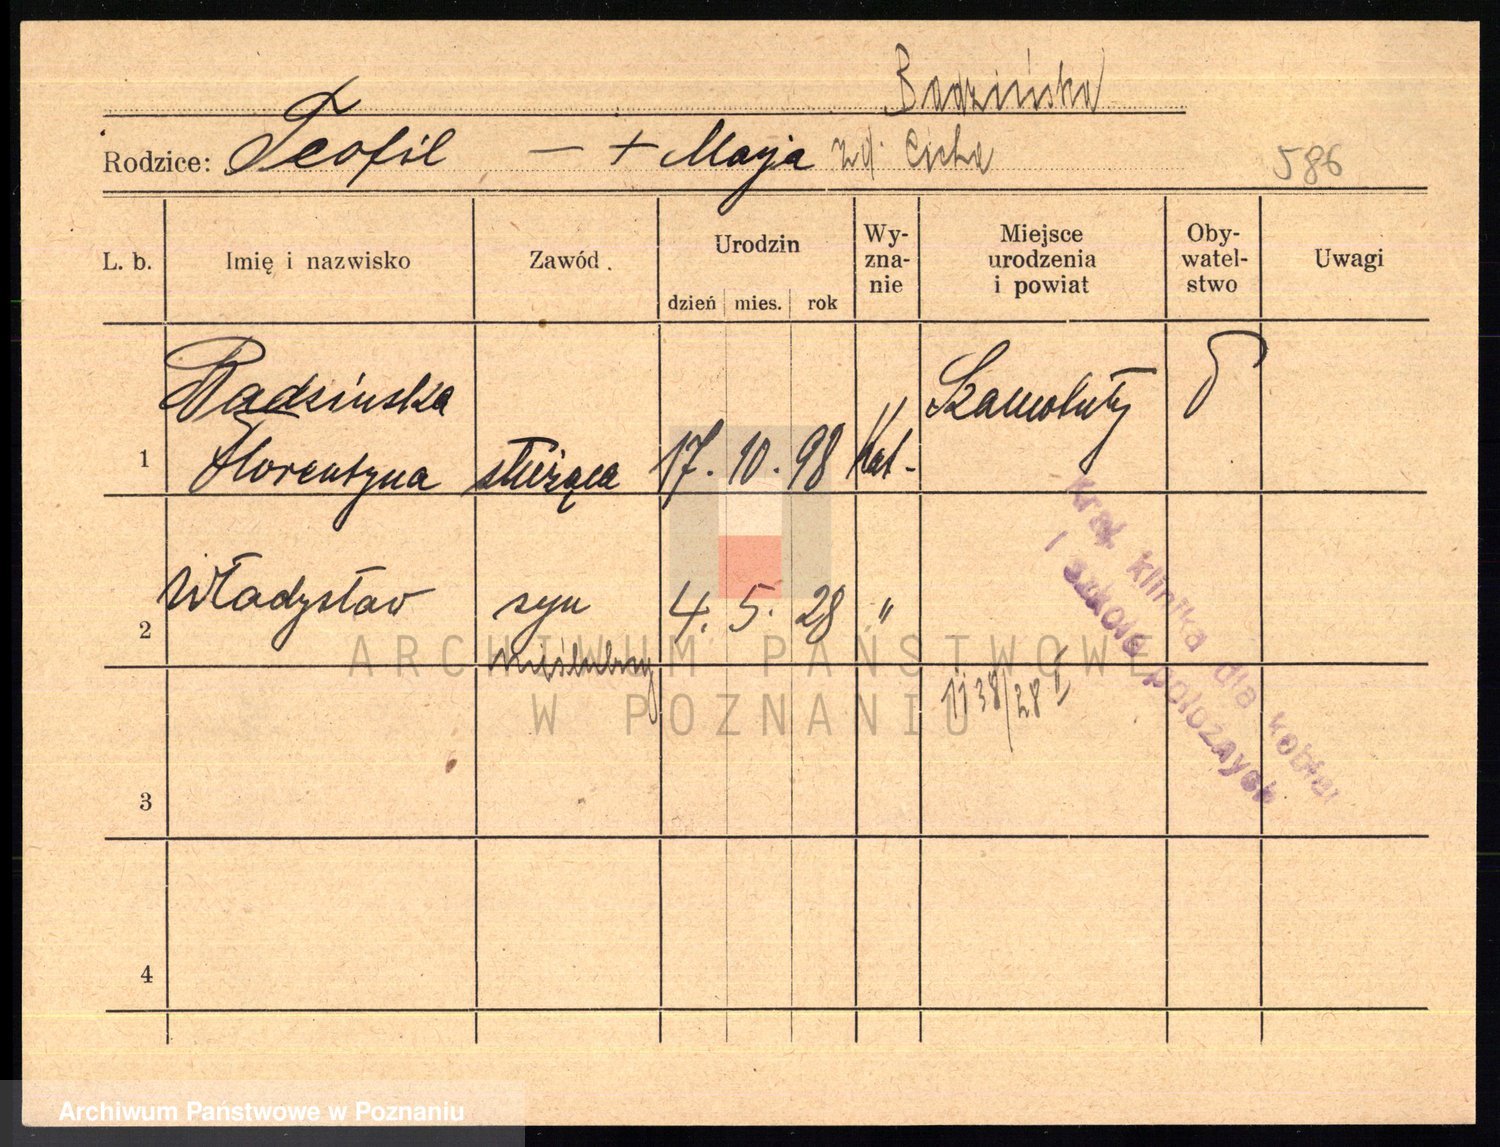 Badzińska
Rodzice: Teofil — + Marja zd. Cicha
586
L. b. Imię i nazwisko Zawód. Urodzin dzień mies. rok Wy-zna-nie Miejsce urodzenia i powiat Oby-watel-stwo Uwagi
Badzińska Szamotuły
1 Florentyna służąca 17. 10. 98 Kat-
2 Władysław syn 4. 5. 28 "
nieślubny
1138/28
Kraj. klinika dla kobiet
i szkoła położnych
3
4
ARCHIWUM PAŃSTWOWE
W POZNANIU
Archiwum Państwowe w Poznaniu